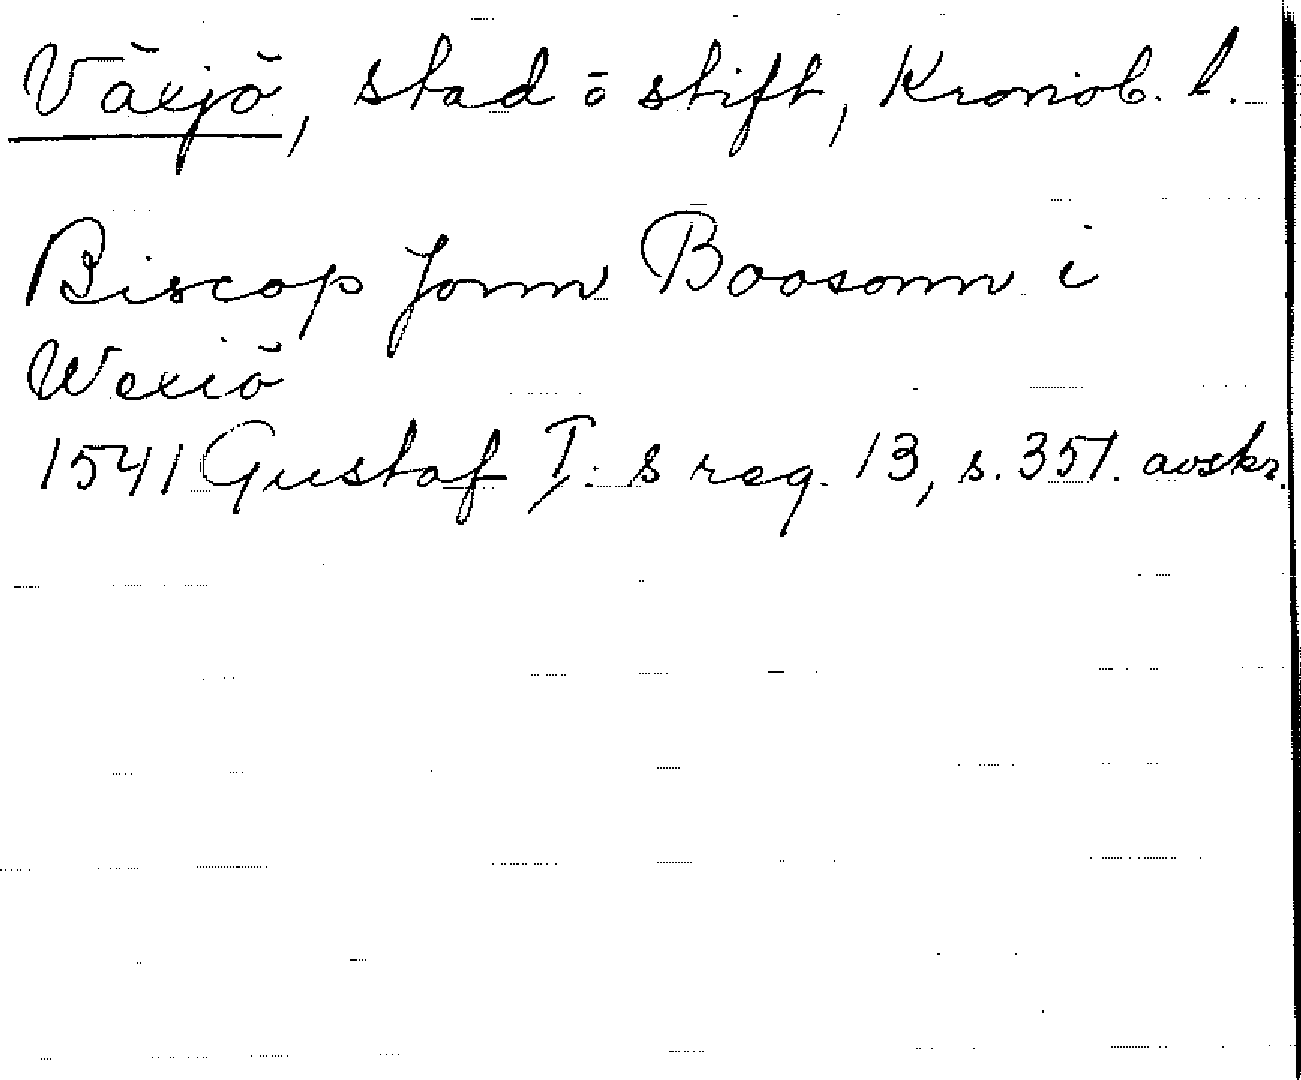 Växjö, stad ö stift, Kronob. l.
Biscop Jonn Boosonn i
Wexiö
1541 Gustaf I:s reg. 13, s. 351. avskr.